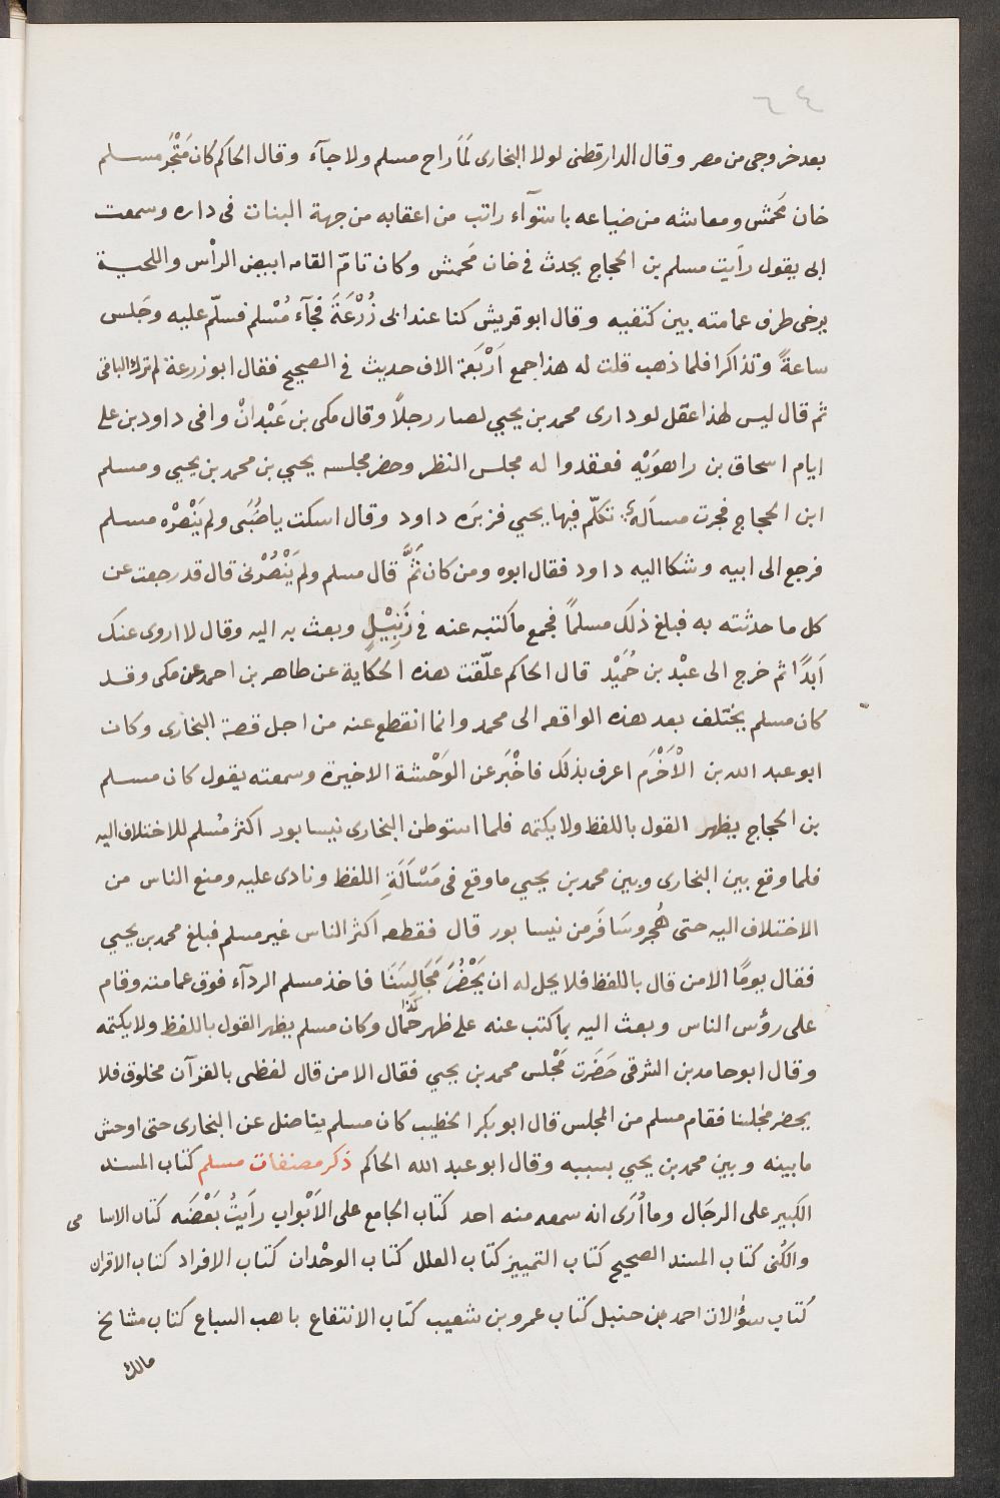 ٦٤
بعد خروجى من مصر وقال الدارقطنى لولا البخارى لَمَا راح مسلم ولا جآء وقال الحاكم كان مَتْجَر مسلم
خان مَحْمَش ومعاشه من ضياعه باستوآء راتب من اعقابه من جهة البنات فى داره وسمعت
ابى يقول رأيت مسلم بن الحجاج يحدث فى خان مَحمش وكان تامّ القامه ابيض الرأس واللحية
يرخى طرف عمامته بين كتفيه وقال ابو قريش كنا عند ابى زُرْعَةَ فجآء مُسْلم فسلّم عليه وجَلس
ساعةً وتذاكرا فلما ذهب قلت له هذا جمع اَرْبَعة الاف حديث فى الصحيح فقال ابو زرعة لم ترك الباقى
ثم قال ليس لهذا عقل لو دارى محمد بن يحيي لصار رجلاً وقال مكى بن عَبْدانْ وافى داود بن على
ايام اسحاق بن راهوَيْه فعقدوا له مجلس النظر وحضر مجلسه يحيي بن محمد بن يحيي ومسلم
ابن الحجاج فجرت مسألةٌ تكلّم فيها يحيي فزبَره داود وقال اسكت يا صُبَى ولم يَنْصرْه مسلم
فرجع الى ابيه وشكا اليه داود فقال ابوه ومن كان ثَمَّ قال مسلم ولم يَنْصُرْنى قال قد رجعت عن
كل ما حدثته به فبلغ ذلك مسلماً فجمع ما كتبه عنه فى زَنبِيْلٍ وبعث به اليه وقال لا اروى عنك
اَبدًا ثم خرج الى عبْد بن حُمَيْد قال الحاكم علّقت هذه الحكاية عن طاهر بن احمد عن مكى وقد
كان مسلم يختلف بعد هذه الواقعه الى محمد وانما انقطع عنه من اجل قصة البخارى وكان
ابو عبد الله بن الْاَخْرَم اعرف بذلك فاخْبَر عن الوَحْشة الاخيرة وسمعته يقول كان مسلم
بن الحجاج يظهر القول باللفظ ولا يكتمه فلما استوطن البخارى نيسابور اكثر مُسلم للاختلاف اليه
فلما وقع بين البخارى وبين محمد بن يحيي ما وقع فى مَسْاَلَةِ اللفظ ونادى عليه ومنع الناس من
الاختلاف اليه حتى هُجر وسَافَر من نيسابور قال فقطعه اكثر الناس غير مسلم فبلغ محمد بن يحيي
فقال يومًا الا من قال باللفظ فلا يحل له ان يَحْضُرَ مَجَالِسَنَا فاخذ مسلم الردآء فوق عمامته وقام
على رؤس الناس وبعث اليه بما كتب عنه على ظهر حَمَّال وكان مسلم يظهر القول باللفظ ولا يكتمه
وقال ابو حامد بن الشرقى حَضَرت مَجْلس محمد بن يحيي فقال الا من قال لفظى بالقرآن مخلوق فلا
يحضر مجلسنا فقام مسلم من المجلس قال ابو بكر الخطيب كان مسلم يناضل عن البخارى حتى اوحش
ما بينه وبين محمد بن يحيي بسببه وقال ابو عبد الله الحاكم ذكر مصنفات مسلم كتاب المسند
الكبير على الرجَال وما اُرَى انه سمعه منه احد كتاب الجامع على الاَبْواب رأيتُ بَعْضَه كتاب الاسامى
والكُنى كتاب المسند الصحيح كتاب التمييز كتاب العلل كتاب الوحْدان كتاب الافراد كتاب الاقران
كُتاب سؤٰالات احمد بن حنبل كتاب عمرو بن شعيب كتاب الانتفاع باهب السباع كتاب مشايخ
مالك